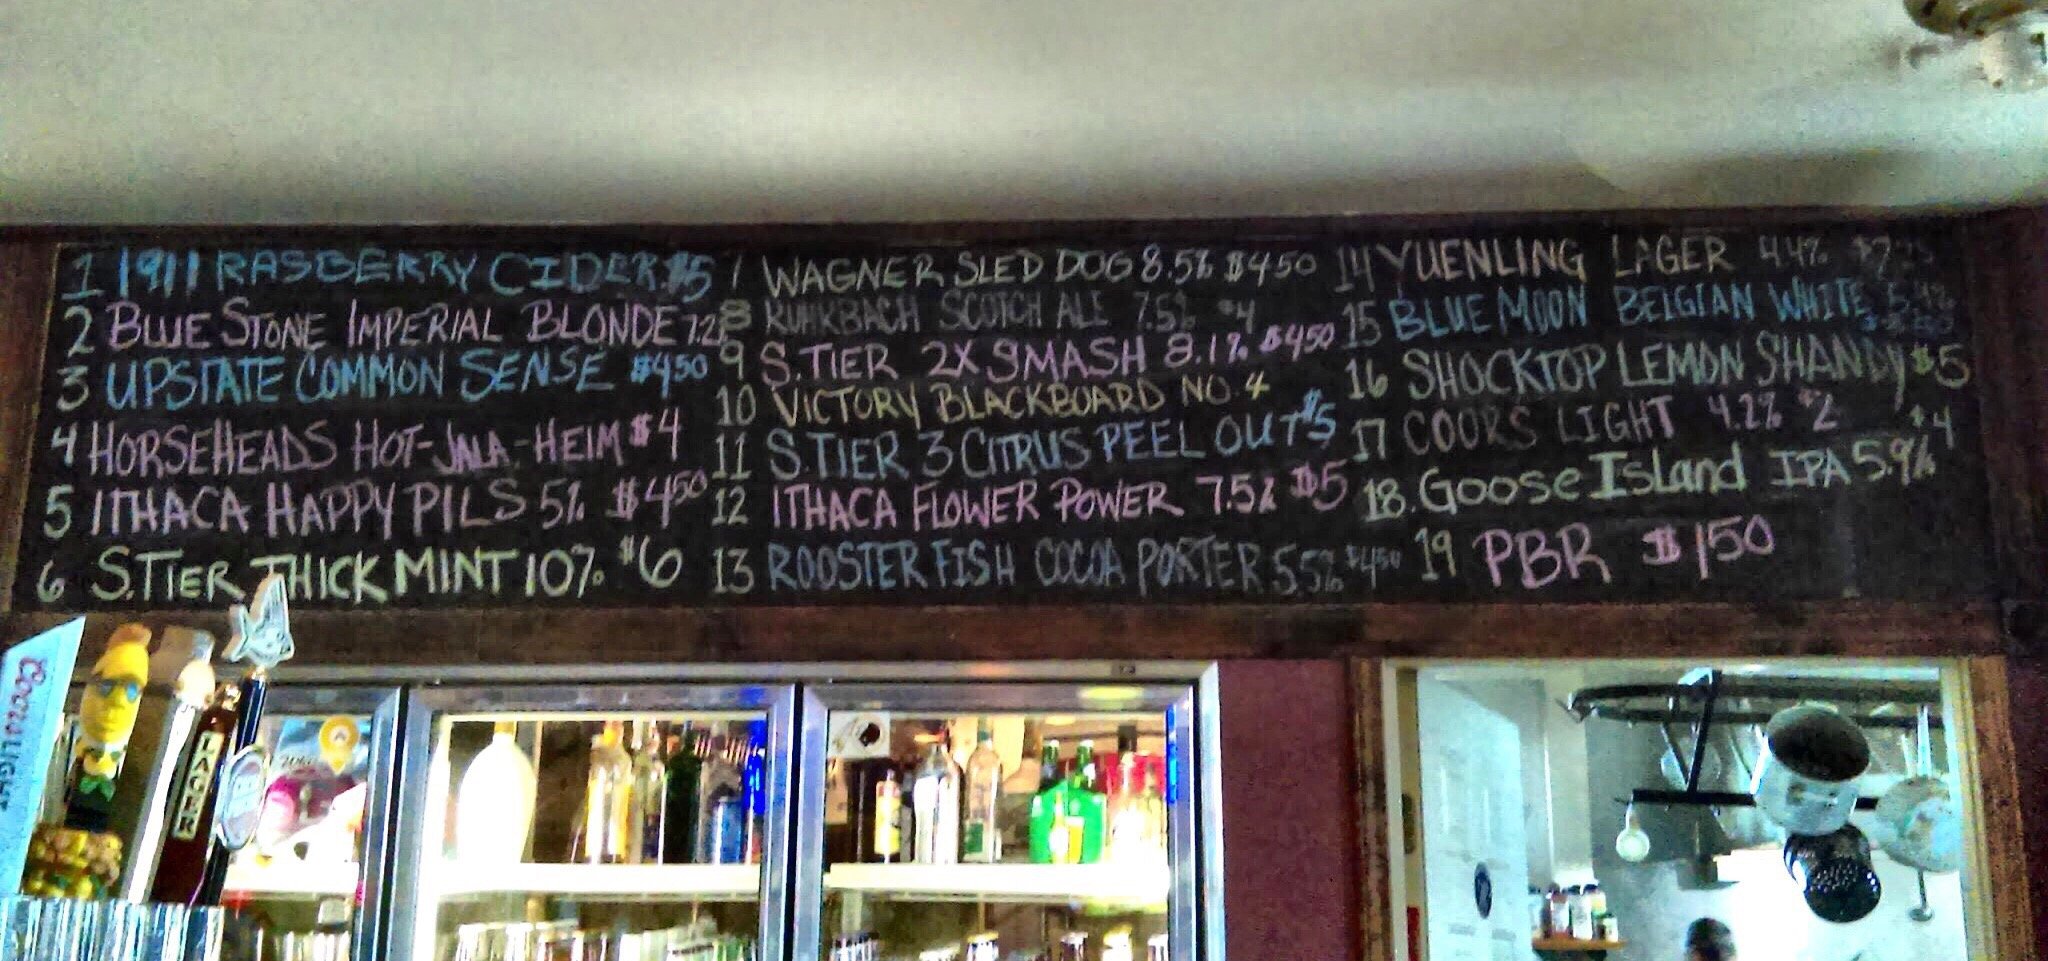 1 1911 RASBERRY CIDER $5
2 BLUE STONE IMPERIAL BLONDE 7.2%
3 UPSTATE COMMON SENSE $4.50
4 HORSEHEADS HOT-JALA-HEIM $4
5 ITHACA HAPPY PILS 5% $4.50
6 S.TIER THICK MINT 10% $6
7 WAGNER SLED DOG 8.5% $4.50
8 SCOTCH ALE 7.5% $4
9 S.TIER 2X SMASH 8.1% $4.50
10 VICTORY BLACKBOARD NO. 4
11 S.TIER 3 CITRUS PEEL OUT $5
12 ITHACA FLOWER POWER 7.5% $5
13 ROOSTER FISH COCOA PORTER 5.5% $4.50
14 YUENLING LAGER 4.4%
15 BLUE MOON BELGIAN WHITE 5.4%
16 SHOCKTOP LEMON SHANDY $5
17 COORS LIGHT 4.2% $2
18. Goose Island IPA 5.9% $4
19 PBR $1.50
Coors LIGHT